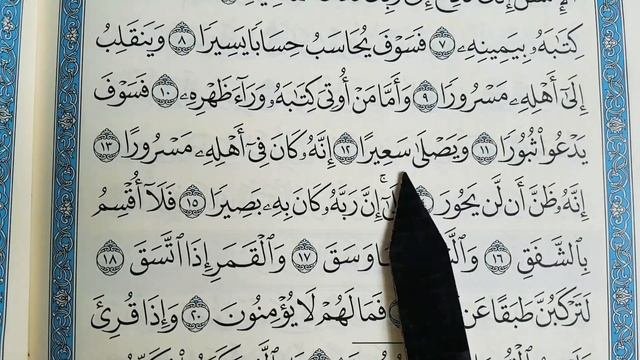 كِتَٰبَهُۥ بِيَمِينِهِۦ ٧ فَسَوْفَ يُحَاسَبُ حِسَابًا يَسِيرًا ٨ وَيَنقَلِبُ
إِلَىٰٓ أَهْلِهِۦ مَسْرُورًا ٩ وَأَمَّا مَنْ أُوتِىَ كِتَٰبَهُۥ وَرَآءَ ظَهْرِهِۦ ١٠ فَسَوْفَ
يَدْعُوا۟ ثُبُورًا ١١ وَيَصْلَىٰ سَعِيرًا ١٢ إِنَّهُۥ كَانَ فِىٓ أَهْلِهِۦ مَسْرُورًا ١٣
إِنَّهُۥ ظَنَّ أَن لَّن يَحُورَ إِنَّ رَبَّهُۥ كَانَ بِهِۦ بَصِيرًا ١٥ فَلَآ أُقْسِمُ
بِٱلشَّفَقِ ١٦ وَسَقَ ١٧ وَٱلْقَمَرِ إِذَا ٱتَّسَقَ ١٨
لَتَرْكَبُنَّ طَبَقًا عَن فَمَا لَهُمْ لَا يُؤْمِنُونَ ٢٠ وَإِذَا قُرِئَ